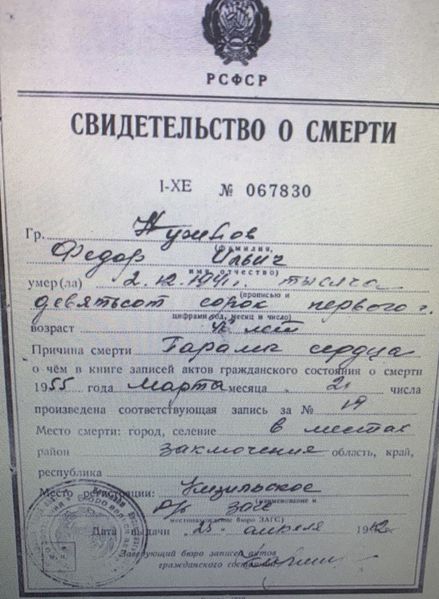 РСФСР
СВИДЕТЕЛЬСТВО О СМЕРТИ
I-ХЕ № 067830
Гр.
(фамилия,
Федор Ильич
имя, отчество)
умер(ла) 2.12.1941г. тысяча
(прописью и
девятьсот сорок первого г.
цифрами год, месяц и число)
возраст лет
Причина смерти Паралич сердца
о чём в книге записей актов гражданского состояния о смерти
1955 года марта месяца числа
произведена соответствующая запись за № 19
Место смерти: город, селение в местах
район заключения область, край,
республика
Место регистрации: Кизильское
(наименование и
р/б ЗАГС
местонахождение бюро ЗАГС)
Дата выдачи апреля 19
Заведующий бюро записей актов
гражданского состояния